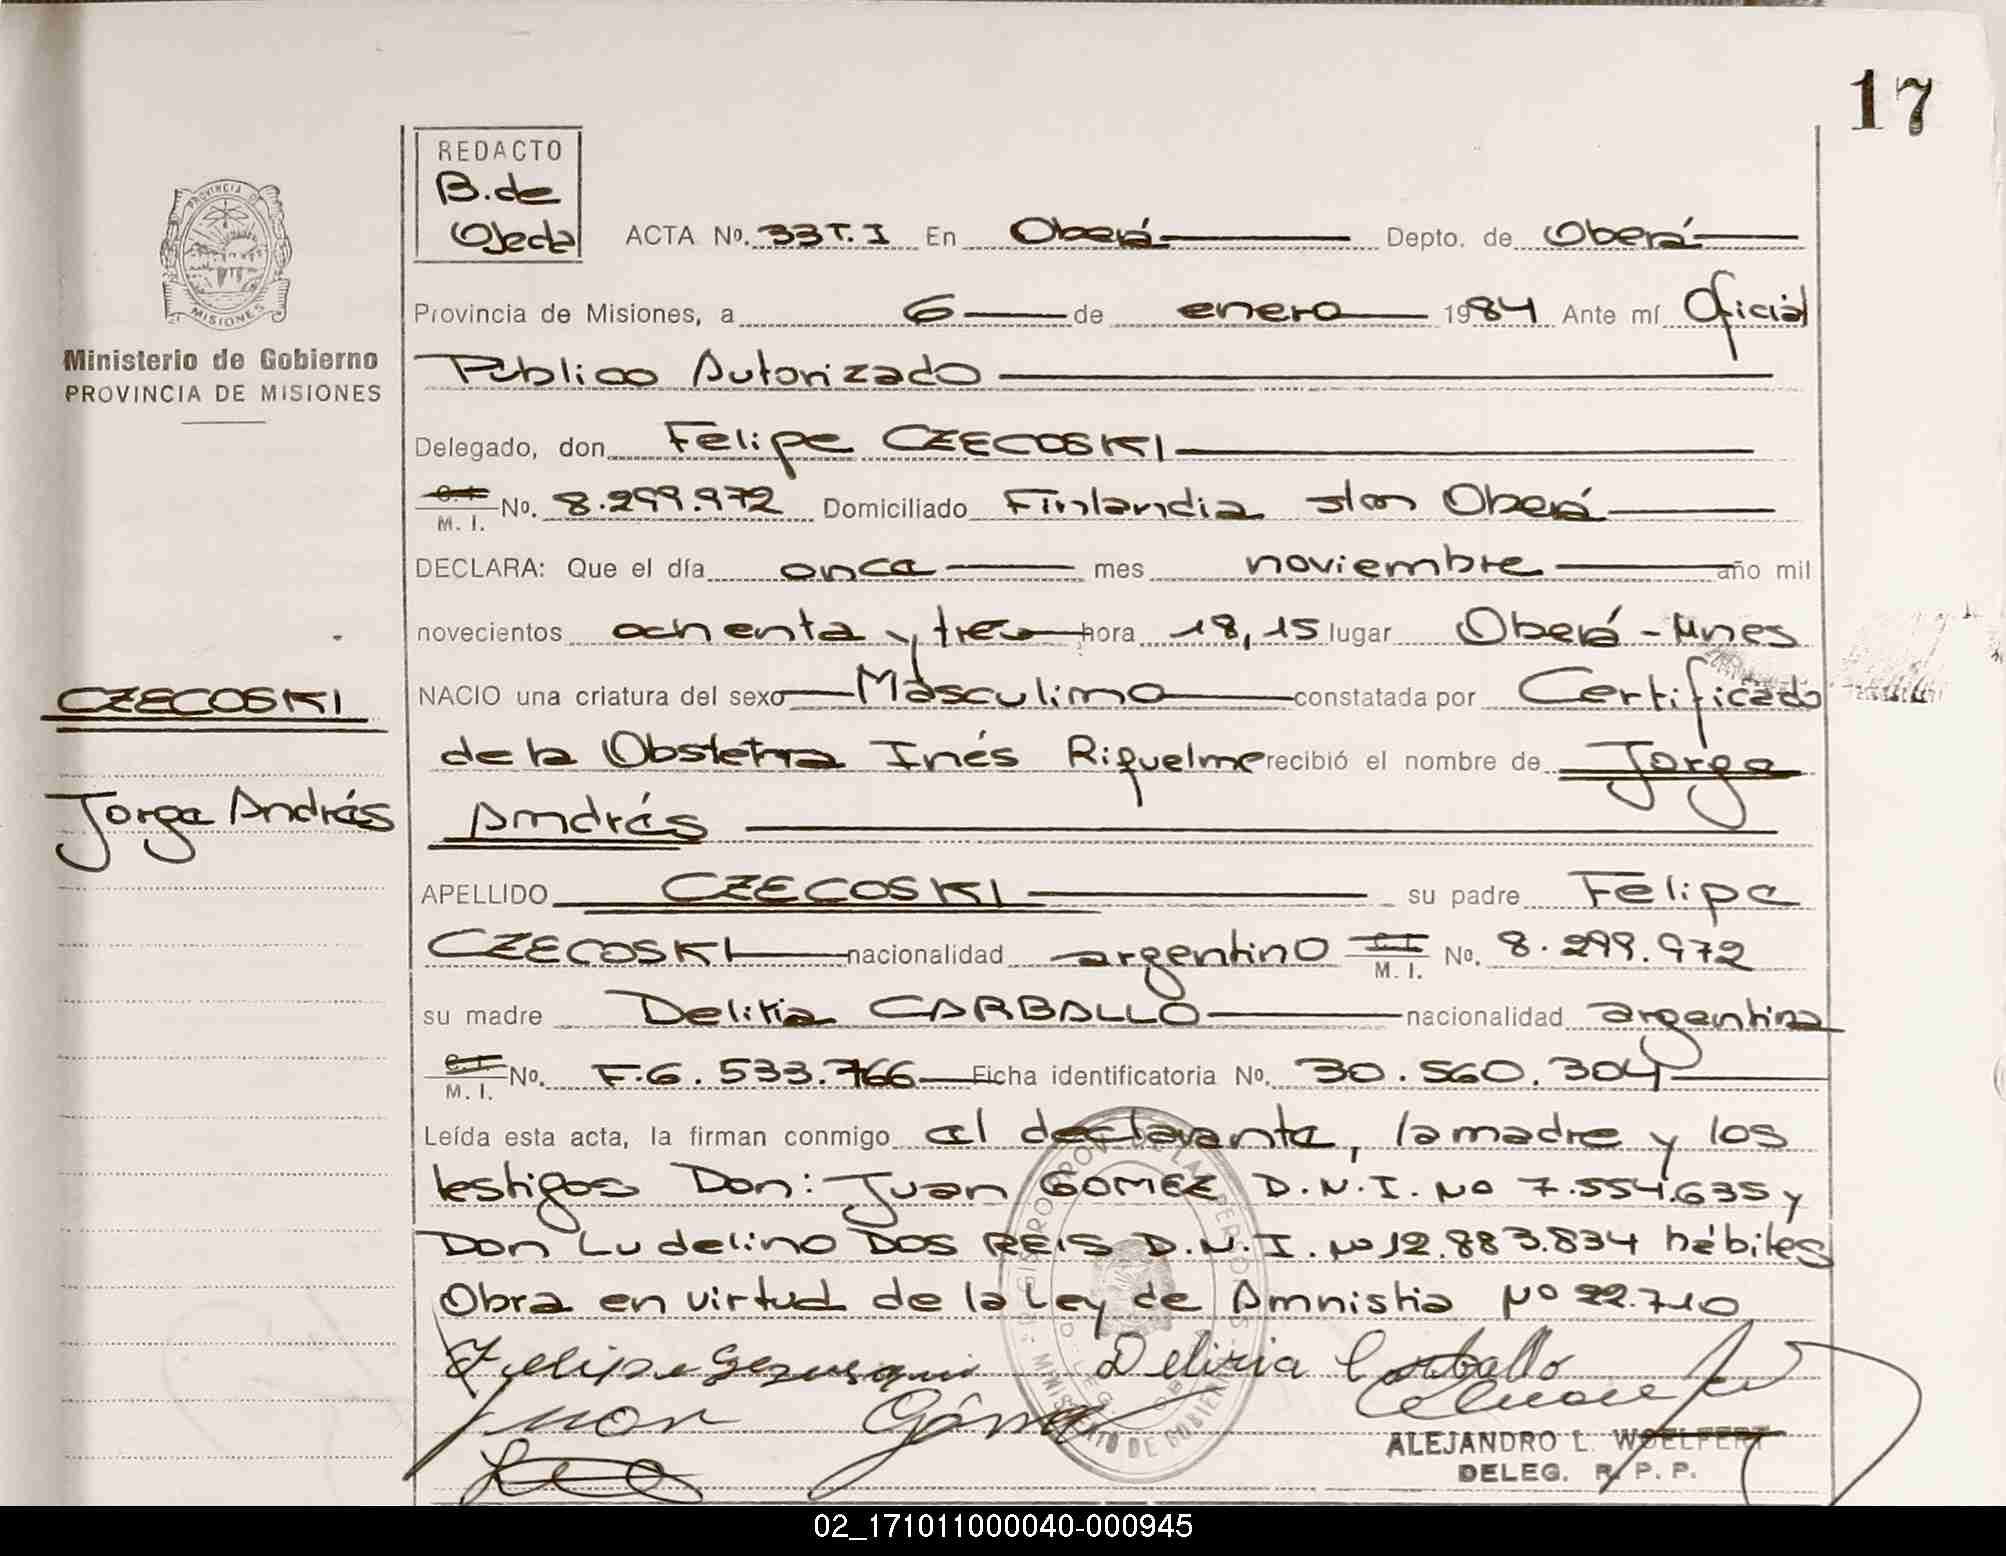 17
REDACTO
B. de
Ojeda
ACTA Nº. 33 T. I En Oberá Depto. de Oberá
PROVINCIA DE
MISIONES
Provincia de Misiones, a 6 de enero 1984 Ante mí Oficial
Ministerio de Gobierno
PROVINCIA DE MISIONES
Público Autorizado
Delegado, don Felipe CZECOSKI
C.I. M. I. Nº. 8.299.972 Domiciliado Finlandia s/n Oberá
DECLARA: Que el día once mes noviembre año mil
novecientos ochenta y tres hora 18,15 lugar Oberá - Mnes
CZECOSKI
NACIO una criatura del sexo Masculino constatada por Certificado
de la Obstetra Inés Riquelme recibió el nombre de Jorge
Jorge Andrés
Andrés
APELLIDO CZECOSKI su padre Felipe
CZECOSKI nacionalidad argentino C.I. M. I. Nº. 8.299.972
su madre Deliria CARBALLO nacionalidad argentina
C.I. M. I. Nº. F.6.533.766 Ficha identificatoria Nº. 30.560.304
Leída esta acta, la firman conmigo el declarante, la madre y los
testigos Don: Juan GOMEZ D.N.I. Nº 7.554.635 y
Don Ludelino DOS REIS D.N.I. Nº 12.883.834 hábiles
Obra en virtud de la Ley de Amnistia Nº 22.710
Deliria Carballo
Juan Gómez
MINISTERIO DE GOBIERNO
ALEJANDRO L. WOELFERT
DELEG. R. P. P.
02_171011000040-000945